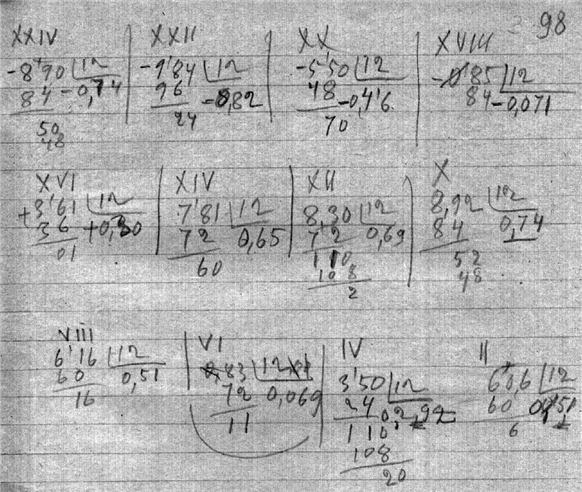 98
XXIV XXII XX XVIII
-8'90 12 -9'84 12 -5'50 12 -0'85 12
84 -0,74 96 -0,82 48 -0,46 84 -0,071
50 24 70
48
XVI XIV XII X
+3'61 12 7'81 12 8,30 12 8,92 12
36 +0,30 72 0,65 72 0,69 84 0,74
01 60 110 52
108 48
2
VIII VI IV II
6'16 12 83 12 3'50 12 60,6 12
60 0,51 72 0,069 24 60
16 11 110 6
108
20